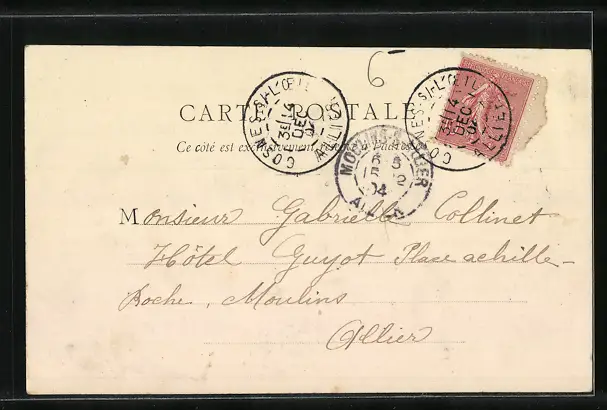 6
CARTE POSTALE
Ce côté est exclusivement réservé à l'adresse
COSNE-S-L'ŒIL ALLIER
3E 14 DEC 04
COSNE-S-L'ŒIL ALLIER
3E 14 DEC 04
MOULINS-S-ALLIER
04
Monsieur Gabrielle Collinet
Hôtel Guyot Place achille-
Roche, Moulins
Allier